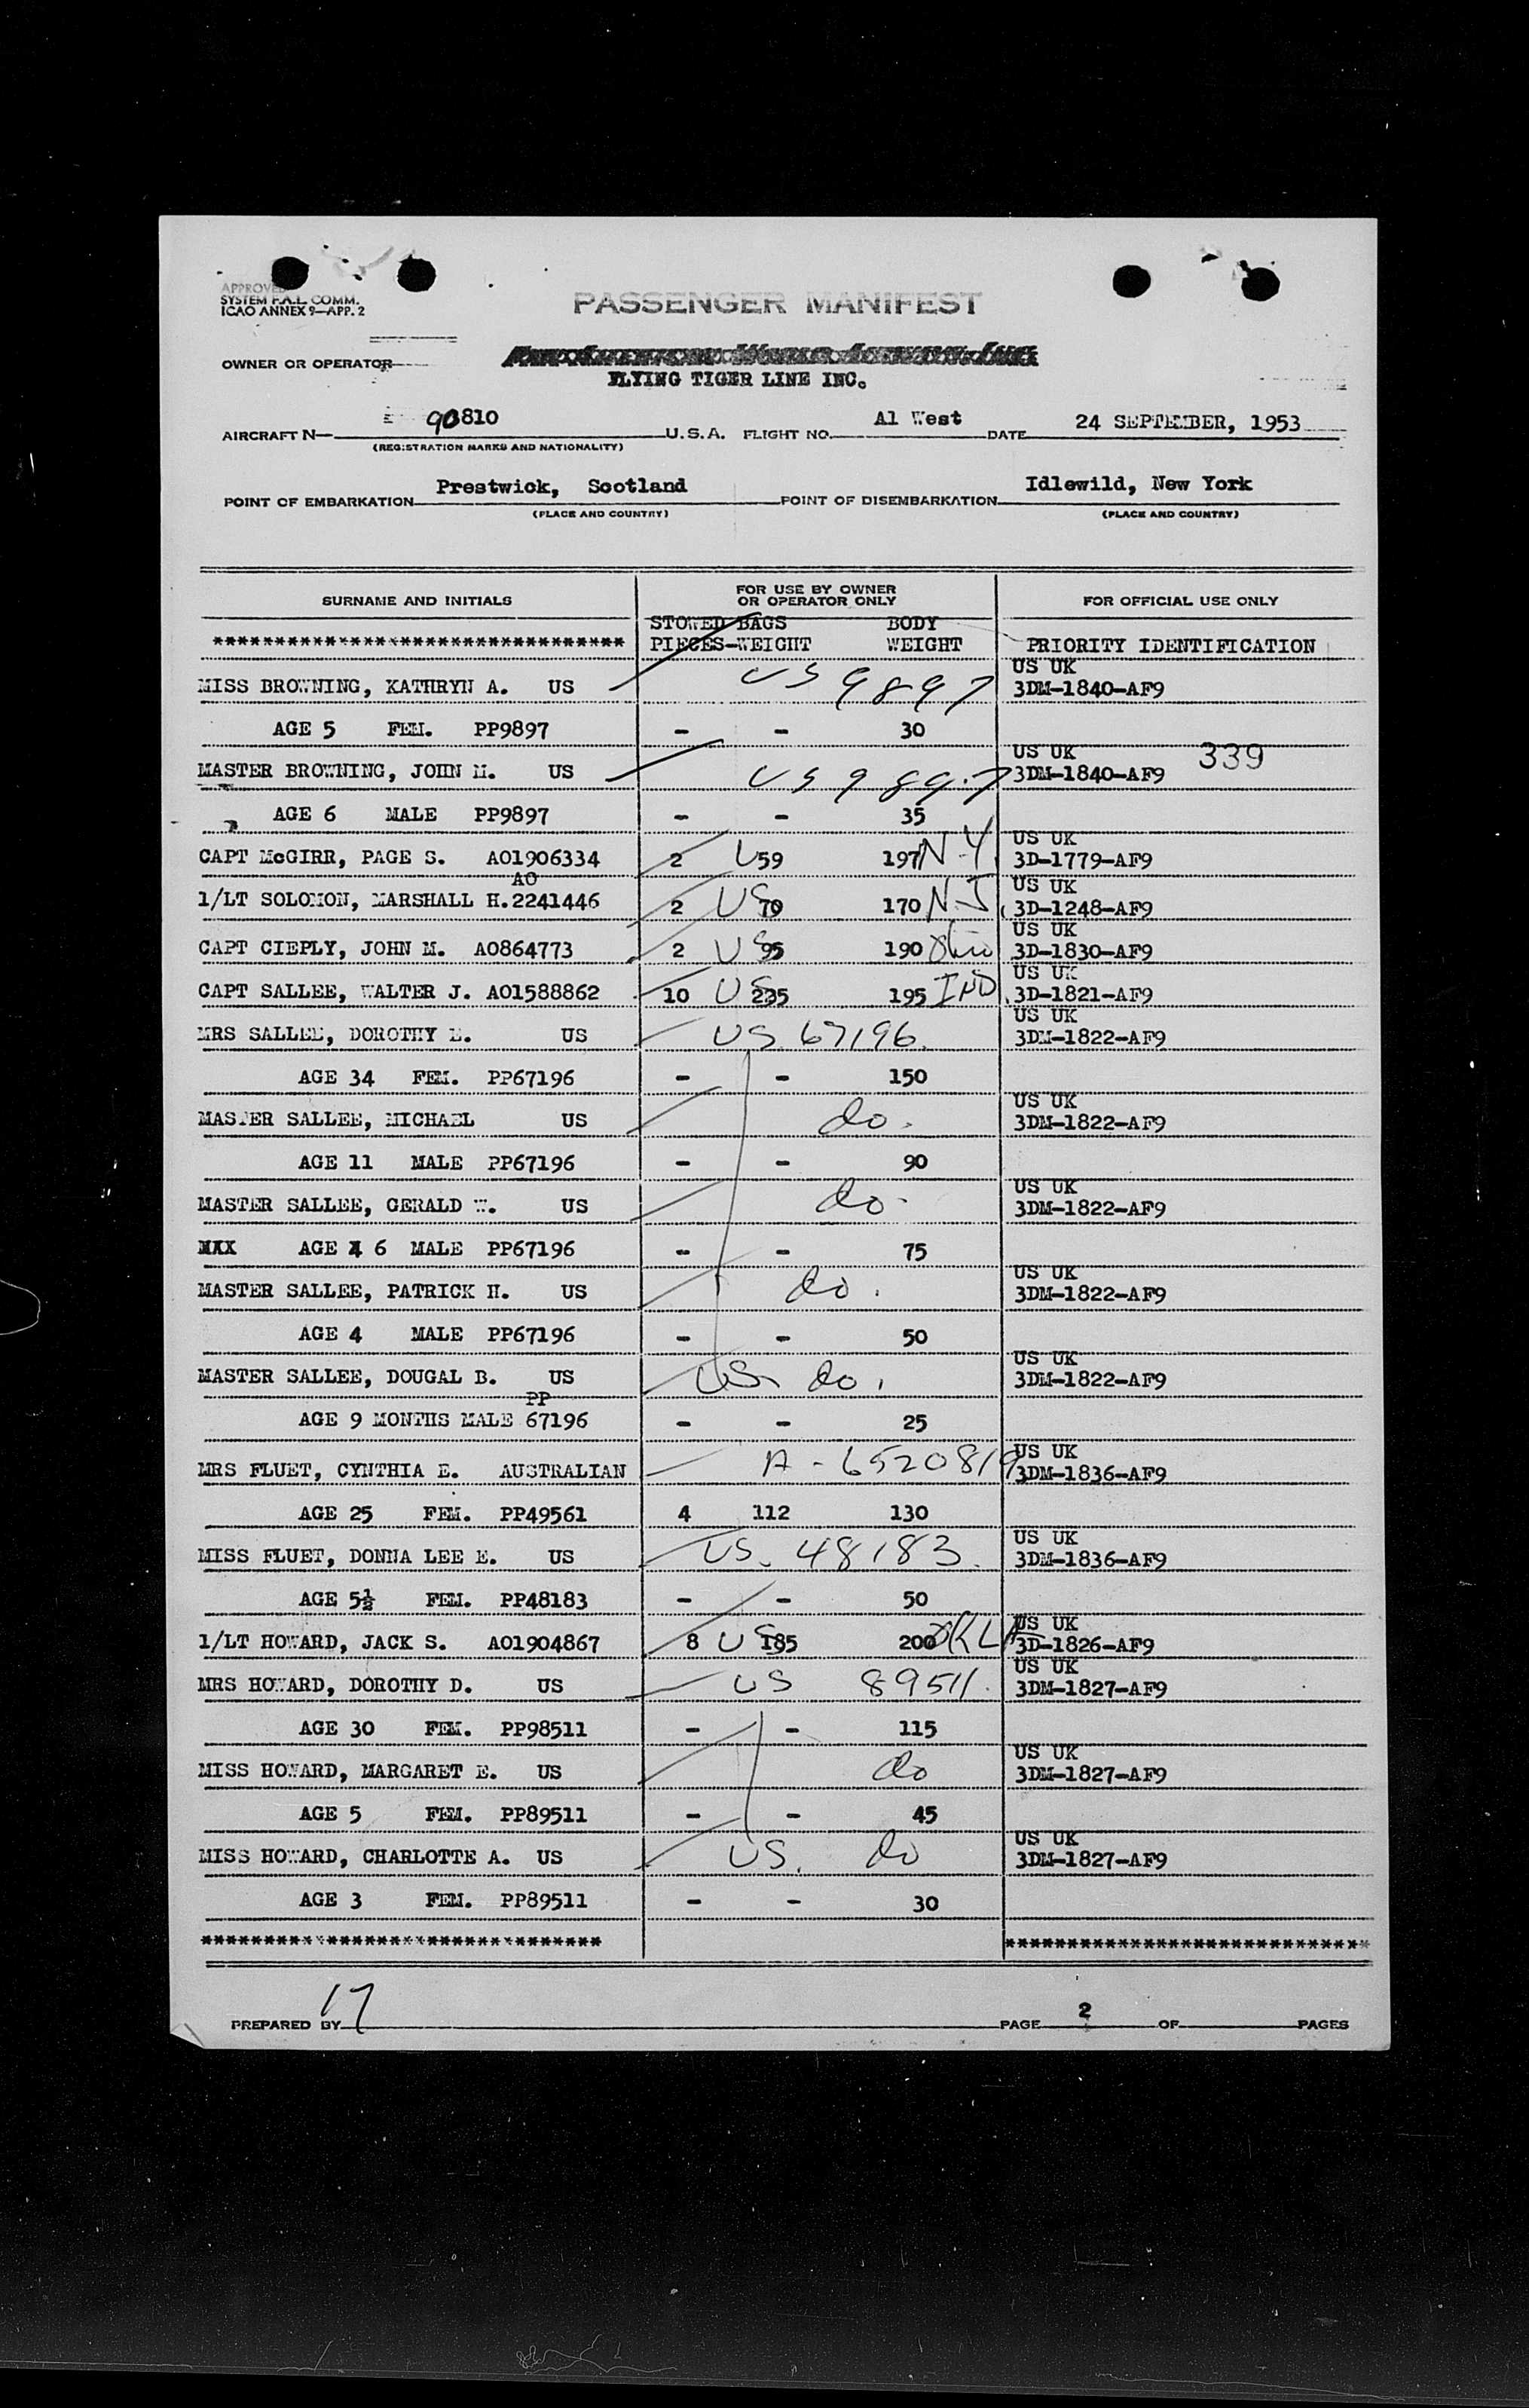 APPROVED
SYSTEM F.A.L. COMM.
ICAO ANNEX 9—APP. 2
PASSENGER MANIFEST
OWNER OR OPERATOR
FLYING TIGER LINE INC.
AIRCRAFT N— 90810 U.S.A. FLIGHT NO. Al West DATE 24 SEPTEMBER, 1953
(REGISTRATION MARKS AND NATIONALITY)
POINT OF EMBARKATION Prestwick, Scotland POINT OF DISEMBARKATION Idlewild, New York
(PLACE AND COUNTRY) (PLACE AND COUNTRY)
SURNAME AND INITIALS FOR USE BY OWNER OR OPERATOR ONLY FOR OFFICIAL USE ONLY
STOWED BAGS BODY
PIECES-WEIGHT WEIGHT PRIORITY IDENTIFICATION
US UK
MISS BROWNING, KATHRYN A. US US 9897 3DM-1840-AF9
AGE 5 FEM. PP9897 - - 30
US UK 339
MASTER BROWNING, JOHN M. US US 9897 3DM-1840-AF9
AGE 6 MALE PP9897 - - 35
US UK
CAPT McGIRR, PAGE S. AO1906334 2 U 59 197 N.Y. 3D-1779-AF9
AO US UK
1/LT SOLOMON, MARSHALL H. 2241446 2 US 70 170 N.J. 3D-1248-AF9
US UK
CAPT CIEPLY, JOHN M. AO864773 2 US 95 190 Ohio 3D-1830-AF9
US UK
CAPT SALLEE, WALTER J. AO1588862 10 US 235 195 IND. 3D-1821-AF9
US UK
MRS SALLEE, DOROTHY E. US US 67196. 3DM-1822-AF9
AGE 34 FEM. PP67196 - - 150
US UK
MASTER SALLEE, MICHAEL US do. 3DM-1822-AF9
AGE 11 MALE PP67196 - - 90
US UK
MASTER SALLEE, GERALD W. US do. 3DM-1822-AF9
AGE 6 MALE PP67196 - - 75
US UK
MASTER SALLEE, PATRICK H. US do. 3DM-1822-AF9
AGE 4 MALE PP67196 - - 50
US UK
MASTER SALLEE, DOUGAL B. US US do. 3DM-1822-AF9
PP
AGE 9 MONTHS MALE 67196 - - 25
US UK
MRS FLUET, CYNTHIA E. AUSTRALIAN A-6520819 3DM-1836-AF9
AGE 25 FEM. PP49561 4 112 130
US UK
MISS FLUET, DONNA LEE E. US US. 48183. 3DM-1836-AF9
AGE 5½ FEM. PP48183 - - 50
US UK
1/LT HOWARD, JACK S. AO1904867 8 US 185 200 OKLA 3D-1826-AF9
US UK
MRS HOWARD, DOROTHY D. US US 89511. 3DM-1827-AF9
AGE 30 FEM. PP98511 - - 115
US UK
MISS HOWARD, MARGARET E. US do 3DM-1827-AF9
AGE 5 FEM. PP89511 - - 45
US UK
MISS HOWARD, CHARLOTTE A. US US. do 3DM-1827-AF9
AGE 3 FEM. PP89511 - - 30
PREPARED BY 17 PAGE 2 OF PAGES